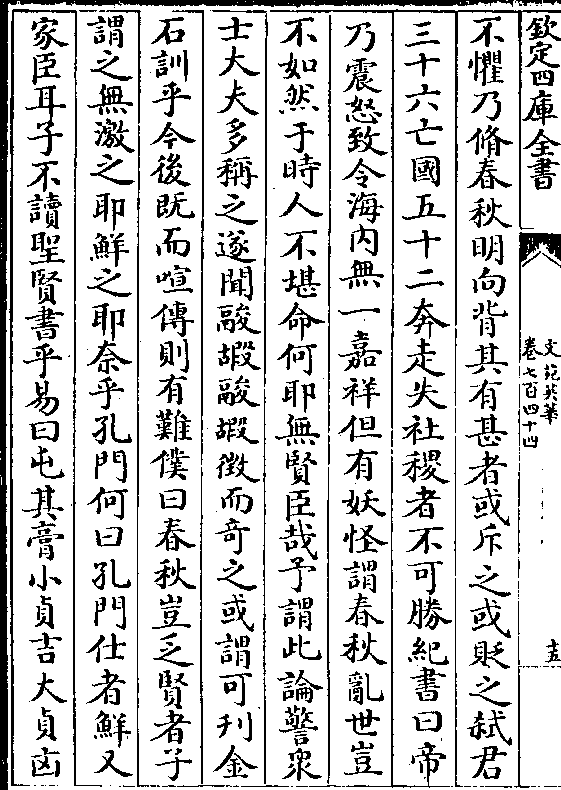 欽定四庫全書
文苑英華
卷七百四十四
十五
不懼乃脩春秋明向背其有甚者或斥之或貶之弑君
三十六亡國五十二奔走失社稷者不可勝紀書曰帝
乃震怒致令海内無一嘉祥但有妖怪謂春秋亂世豈
不如然于時人不堪命何耶無賢臣哉予謂此論警衆
士大夫多稱之遂聞融嘏融嘏徴而奇之或謂可刋金
石訓乎今後既而喧傳則有難僕曰春秋豈乏賢者子
謂之無激之耶鮮之耶奈乎孔門何曰孔門仕者鮮又
家臣耳子不讀聖賢書乎易曰屯其膏小貞吉大貞凶